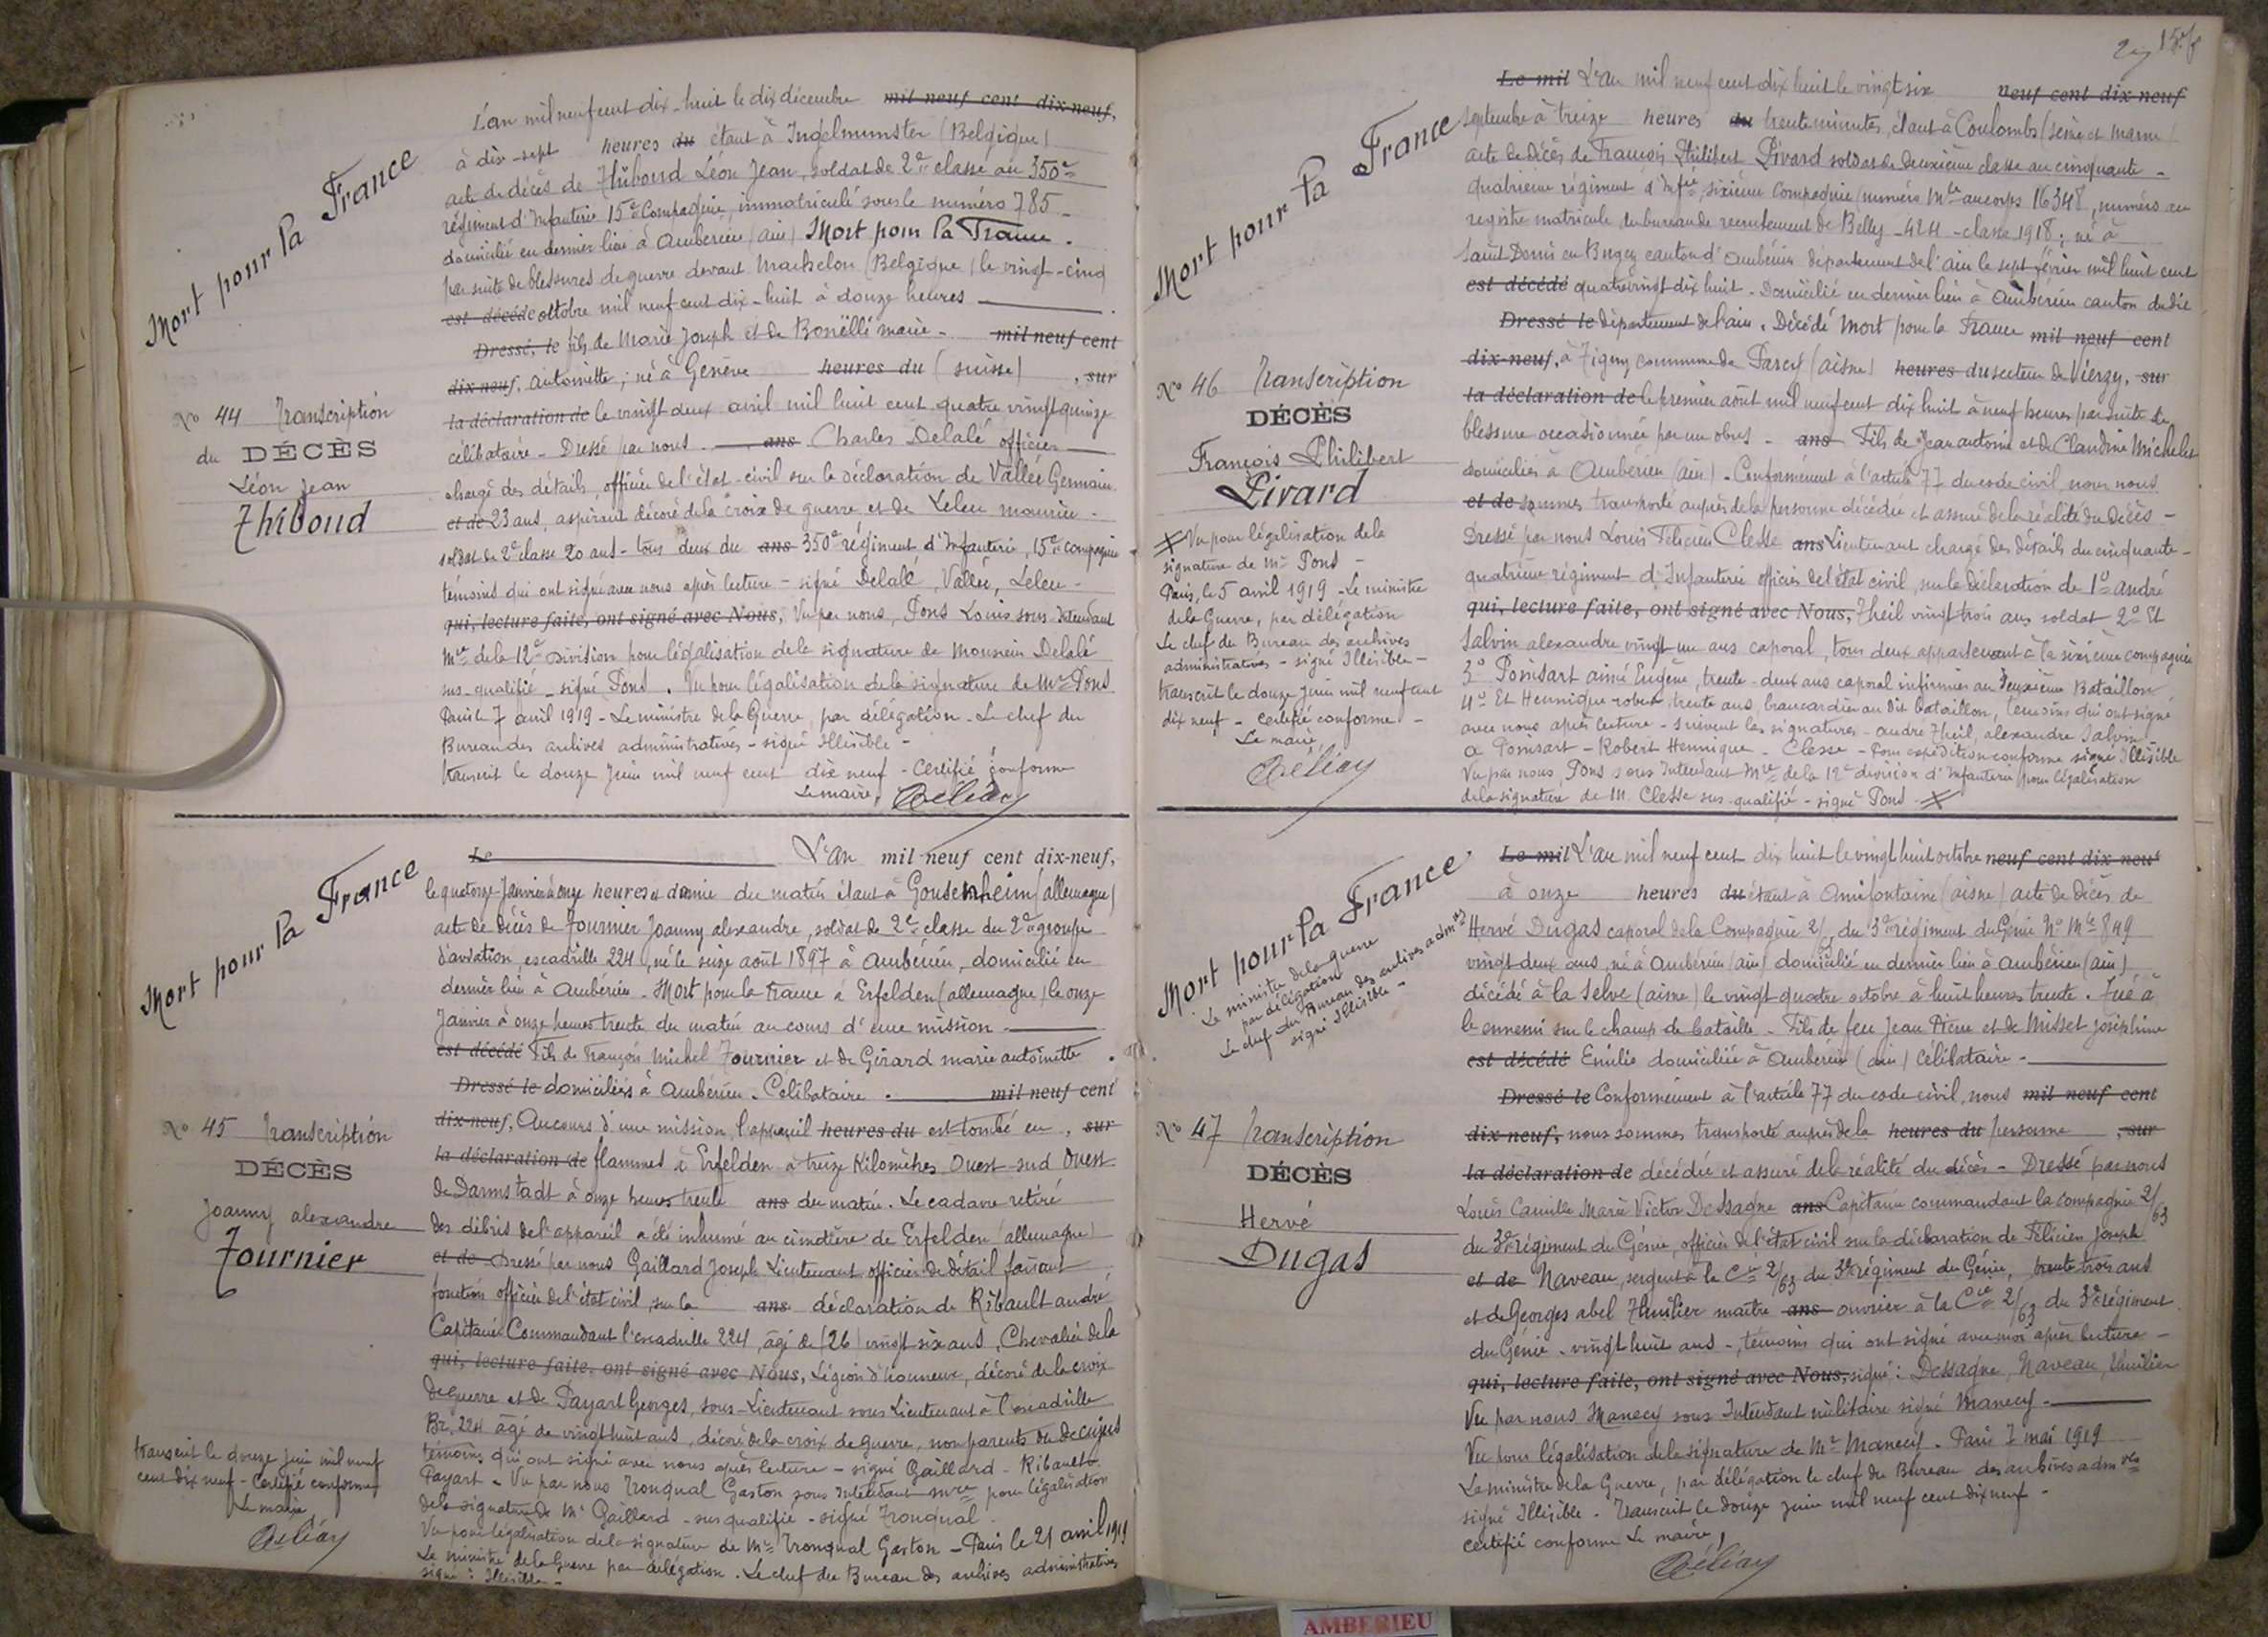 Mort pour la France
N° 44 Transcription
du DÉCÈS
Léon Jean
Thiboud
L'an mil neuf cent dix-huit le dix décembre mil neuf cent dix-neuf,
à dix-sept heures du étant à Ingelmunster (Belgique)
acte de décès de Thiboud Léon Jean, soldat de 2e classe au 350e
régiment d'Infanterie 15e Compagnie, immatriculé sous le numéro 785 -
domicilié en dernier lieu à Ambérieu (ain) Mort pour la France.
par suite de blessures de guerre devant Machelon (Belgique) le vingt-cinq
est décédé octobre mil neuf cent dix-huit à douze heures
Dressé, le fils de Marie Joseph et de Bonëlli marie - mil neuf cent
dix neuf, antoinette ; né à Genève heures du (suisse) , sur
la déclaration de le vingt deux avril mil huit cent quatre vingt quinze
célibataire - Dressé par nous - ans Charles Delalé officier
chargé des détails, officier de l'état-civil sur la déclaration de Vallée Germain
et de 23 ans, aspirant décoré de la croix de guerre et de Leleu maurice -
soldat de 2e classe 20 ans - tous deux du ans 350e régiment d'Infanterie, 15e compagnie
témoins qui ont signé avec nous après lecture - signé Delalé, Vallée, Leleu -
qui, lecture faite, ont signé avec Nous, Vu par nous, Pons Louis sous-Intendant
Mre de la 12e Division pour légalisation de la signature de Monsieur Delalé
sus-qualifié - signé Pons. Vu pour légalisation de la signature de Mr Pons
Paris le 7 avril 1919 - Le ministre de la Guerre, par délégation - Le chef du
Bureau des archives administratives - signé Illisible -
transcrit le douze Juin mil neuf cent dix neuf - Certifié conforme
Le maire,
Mort pour la France
N° 45 Transcription
DÉCÈS
Joanny alexandre
Fournier
transcrit le douze Juin mil neuf
cent dix neuf - Certifié conforme
Le maire
Le L'an mil neuf cent dix-neuf,
le quatorze Janvier à onze heures et demie du matin étant à Gonsenheim (allemagne)
acte de décès de Fournier Joanny alexandre, soldat de 2e classe du 2e groupe
d'aviation, escadrille 224, né le seize août 1897 à Ambérieu, domicilié en
dernier lieu à Ambérieu - Mort pour la France à Erfelden (allemagne) le onze
Janvier à onze heures trente du matin au cours d'une mission -
est décédé Fils de François Michel Fournier et de Girard marie antoinette .
Dressé le domiciliés à Ambérieu. Célibataire. mil neuf cent
dix-neuf, Au cours d'une mission, l'appareil heures du est tombé en , sur
la déclaration de flammes à Erfelden à treize Kilomètres Ouest-sud Ouest
de Darmstadt à onze heures trente ans du matin. Le cadavre retiré
des débris de l'appareil a été inhumé au cimetière de Erfelden (allemagne)
et de Dressé par nous Gaillard Joseph Lieutenant officier de détail faisant
fonction officier de l'état civil, sur la ans déclaration de Ribault andré
Capitaine Commandant l'escadrille 224, âgé de (26) vingt six ans, Chevalier de la
qui, lecture faite, ont signé avec Nous, Légion d'honneur, décoré de la croix
de guerre et de Payart Georges, sous-Lieutenant sous Lieutenant à l'escadrille
Br. 224 âgé de vingt huit ans, décoré de la croix de guerre, non parents du decujus
témoins qui ont signé avec nous après lecture - signé Gaillard - Ribault
Payart - Vu par nous Tronqual Gaston sous Intendant mre pour légalisation
de la signature de Mr Gaillard - sus qualifié - signé Tronqual.
Vu pour légalisation de la signature de Mr Tronqual Gaston - Paris le 21 avril 1919
Le ministre de la Guerre par délégation. Le chef du Bureau des archives administratives
signé : Illisible -
Mort pour la France
N° 46 Transcription
DÉCÈS
François Philibert
Pivard
Vu pour légalisation de la
signature de Mr Pons -
Paris, le 5 avril 1919 - Le ministre
de la Guerre, par délégation
Le chef du Bureau des archives
administratives - signé Illisible -
transcrit le douze Juin mil neuf cent
dix neuf - Certifié conforme -
Le maire
Le mil L'an mil neuf cent dix huit le vingt six neuf cent dix neuf
septembre à treize heures du trente minutes, étant à Coulombs (seine et marne)
acte de décès de François Philibert Pivard soldat de deuxième classe au cinquante-
quatrième régiment d'Infie, sixième compagnie (numéro Mle au corps 16348, numéro au
registre matricule du bureau de recrutement de Belley - 424 - classe 1918 ; né à
Saint Denis en Bugey canton d'Ambérieu département de l'ain le sept février mil huit cent
est décédé quatre vingt dix huit - Domicilié en dernier lieu à Ambérieu canton du dit
Dressé le département de l'ain. Décédé Mort pour la France mil neuf cent
dix-neuf, à Tigny commune de Parcy (aisne) heures du secteur de Vierzy, sur
la déclaration de le premier août mil neuf cent dix huit à neuf heures par suite de
blessure occasionnée par un obus - ans Fils de Jean antoine et de Claudine Michelet
domiciliés à Ambérieu (ain) - Conformément à l'article 77 du code civil, nous nous
et de sommes transporté auprès de la personne décédée et assuré de la réalité du décès -
Dressé par nous Louis Félicien Clesse ans Lieutenant chargé des détails du cinquante-
quatrième régiment d'Infanterie officier de l'état civil, sur la déclaration de 1° andré
qui, lecture faite, ont signé avec Nous, Theil vingt trois ans soldat 2° Et
Salvin alexandre vingt un ans caporal, tous deux appartenant à la sixième compagnie
3° Ponsart aimé Eugène, trente-deux ans caporal infirmier au deuxième Bataillon
4° Et Hennique robert, trente ans, brancardier au dit bataillon, témoins qui ont signé
avec nous après lecture - suivent les signatures - andré Theil, alexandre Salvin
a Ponsart - Robert Hennique - Clesse - Pour expédition conforme signé Illisible
Vu par nous, Pons sous Intendant Mre de la 12e division d'Infanterie pour légalisation
de la signature de M. Clesse sus-qualifié - signé Pons -
Mort pour la France
Le ministre de la guerre
par délégation
Le chef du Bureau des archives admves
signé Illisible -
N° 47 Transcription
DÉCÈS
Hervé
Dugas
Le mil L'an mil neuf cent dix huit le vingt huit octobre neuf cent dix neuf
à onze heures du étant à Amifontaine (aisne) acte de décès de
Hervé Dugas caporal de la Compagnie 2/63 du 3e régiment du Génie N° Mle 849
vingt deux ans, né à Ambérieu (ain) domicilié en dernier lieu à Ambérieu (ain)
décédé à la Selve (aisne) le vingt quatre octobre à huit heures trente. Tué à
le ennemi sur le champ de bataille - Fils de feu Jean Pierre et de Misset Joséphine
est décédé Emilie domiciliée à Ambérieu (ain) Célibataire -
Dressé le Conformément à l'article 77 du code civil, nous mil neuf cent
dix neuf, nous sommes transporté auprès de la heures du personne , sur
la déclaration de décédée et assuré de la réalité du décès - Dressé par nous
Louis Camille Marie Victor Dessagne ans Capitaine commandant la compagnie 2/63
du 3e régiment du Génie, officier de l'état civil sur la déclaration de Félicien Joseph
et de Naveau, sergent à la Cie 2/63 du 3e régiment du Génie, trente trois ans
et de Georges abel Thuilier maître ans ouvrier à la Cie 2/63 du 3e régiment
du Génie - vingt huit ans -, témoins qui ont signé avec moi après lecture -
qui, lecture faite, ont signé avec Nous, signé : Dessagne, Naveau, Thuilier
Vu par nous Manecy sous Intendant militaire signé Manecy -
Vu pour légalisation de la signature de Mr Manecy. Paris 7 mai 1919
Le ministre de la Guerre, par délégation le chef du Bureau des archives admves
signé Illisible - Transcrit le douze juin mil neuf cent dix neuf -
certifié conforme Le maire,
AMBERIEU